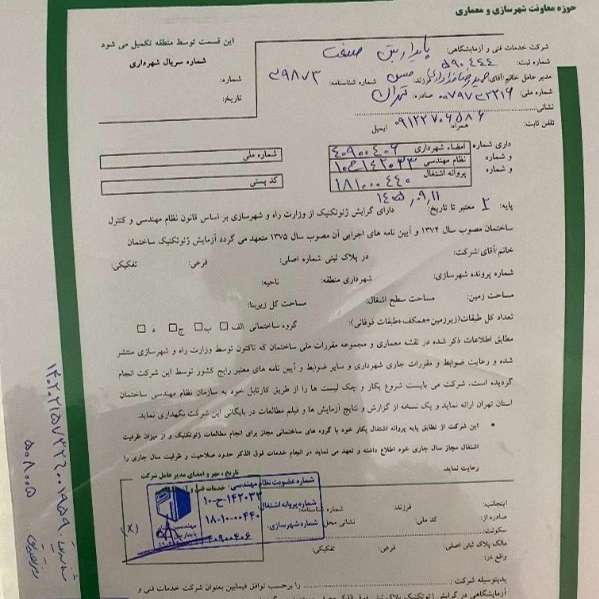 حوزه معاونت شهرسازی و معماری
این قسمت توسط منطقه تکمیل می شود
شماره سریال شهرداری
شماره:
تاریخ:
شرکت خدمات فنی و آزمایشگاهی:
شماره ثبت: ۵۹۰۴۴۴
مدیر عامل خانم/آقای: فرزند: شماره شناسنامه:
شماره ملی: صادره: تهران
نشانی:
تلفن ثابت: همراه: ایمیل
داری شماره امضاء شهرداری ۴۰۹۰۰۴۰۶
و شماره نظام مهندسی ۱۰-ح-۱۴۲۰۳۳
و شماره پروانه اشتغال
شماره ملی
کد پستی
پایه: ۲ معتبر تا تاریخ: دارای گرایش ژئوتکنیک از وزارت راه و شهرسازی بر اساس قانون نظام مهندسی و کنترل
ساختمان مصوب سال ۱۳۷۴ و آیین نامه های اجرایی آن مصوب سال ۱۳۷۵ متعهد می گردد آزمایش ژئوتکنیک ساختمان
خانم/آقای/شرکت: در پلاک ثبتی شماره اصلی: فرعی: تفکیکی:
شماره پرونده شهرسازی: شهرداری منطقه: ناحیه:
مساحت زمین: مساحت سطح اشغال: مساحت کل زیربنا:
تعداد کل طبقات(زیرزمین+همکف+طبقات فوقانی): گروه ساختمانی الف□ ب□ ج□ د□
مطابق اطلاعات ذکر شده در نقشه معماری و مجموعه مقررات ملی ساختمان که تاکنون توسط وزارت راه و شهرسازی منتشر
شده و رعایت ضوابط و مقررات جاری شهرداری و سایر ضوابط و آیین نامه های معتبر رایج کشور توسط این شرکت انجام
گردیده است، شرکت می بایست شروع بکار و چک لیست ها را از طریق کارتابل خود به سازمان نظام مهندسی ساختمان
استان تهران ارائه نماید و یک نسخه از گزارش و نتایج آزمایش ها و فیلم مطالعات در بایگانی این شرکت نگهداری نماید.
• این شرکت از تطابق پایه پروانه اشتغال بکار خود با گروه های ساختمانی مجاز برای انجام مطالعات ژئوتکنیک و از میزان ظرفیت
اشتغال مجاز سال جاری خود اطلاع داشته و تعهد می نماید در انجام خدمات فوق الذکر حدود صلاحیت و ظرفیت سال جاری را
رعایت نماید.
تاریخ، مهر و امضای مدیر عامل شرکت
شماره عضویت نظام مهندسی:
۱۰-ح-۱۴۲۰۳۳
شماره پروانه اشتغال
۱۸-۱۰-۰۰۴۴۰
شماره شهرسازی:
۴۰۹۰۰۴۰۶
اینجانب: فرزند: شماره شناسنامه:
صادره از: کد ملی: نشانی محل
سکونت:
مالک پلاک ثبتی اصلی: فرعی: تفکیکی:
واقع در:
بدینوسیله شرکت: را برحسب توافق فیمابین بعنوان شرکت خدمات فنی و